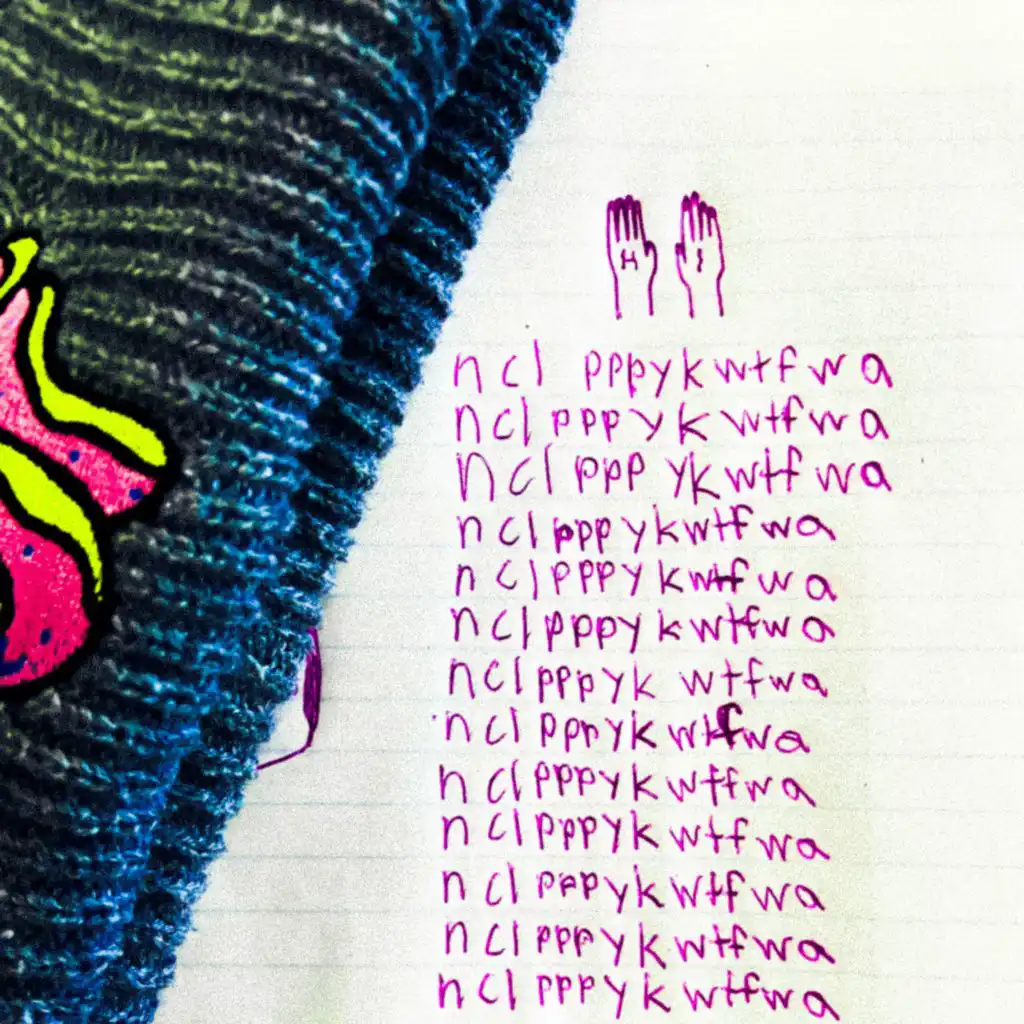 H I
ncl pppykwtfwa
nclpppykwtfwa
nclpppykwtfwa
nclpppykwtfwa
nclpppykwtfwa
nclpppykwtfwa
nclpppykwtfwa
nclpppykwtfwa
nclpppykwtfwa
nclpppykwtfwa
nclpppykwtfwa
nclpppykwtfwa
nclpppykwtfwa